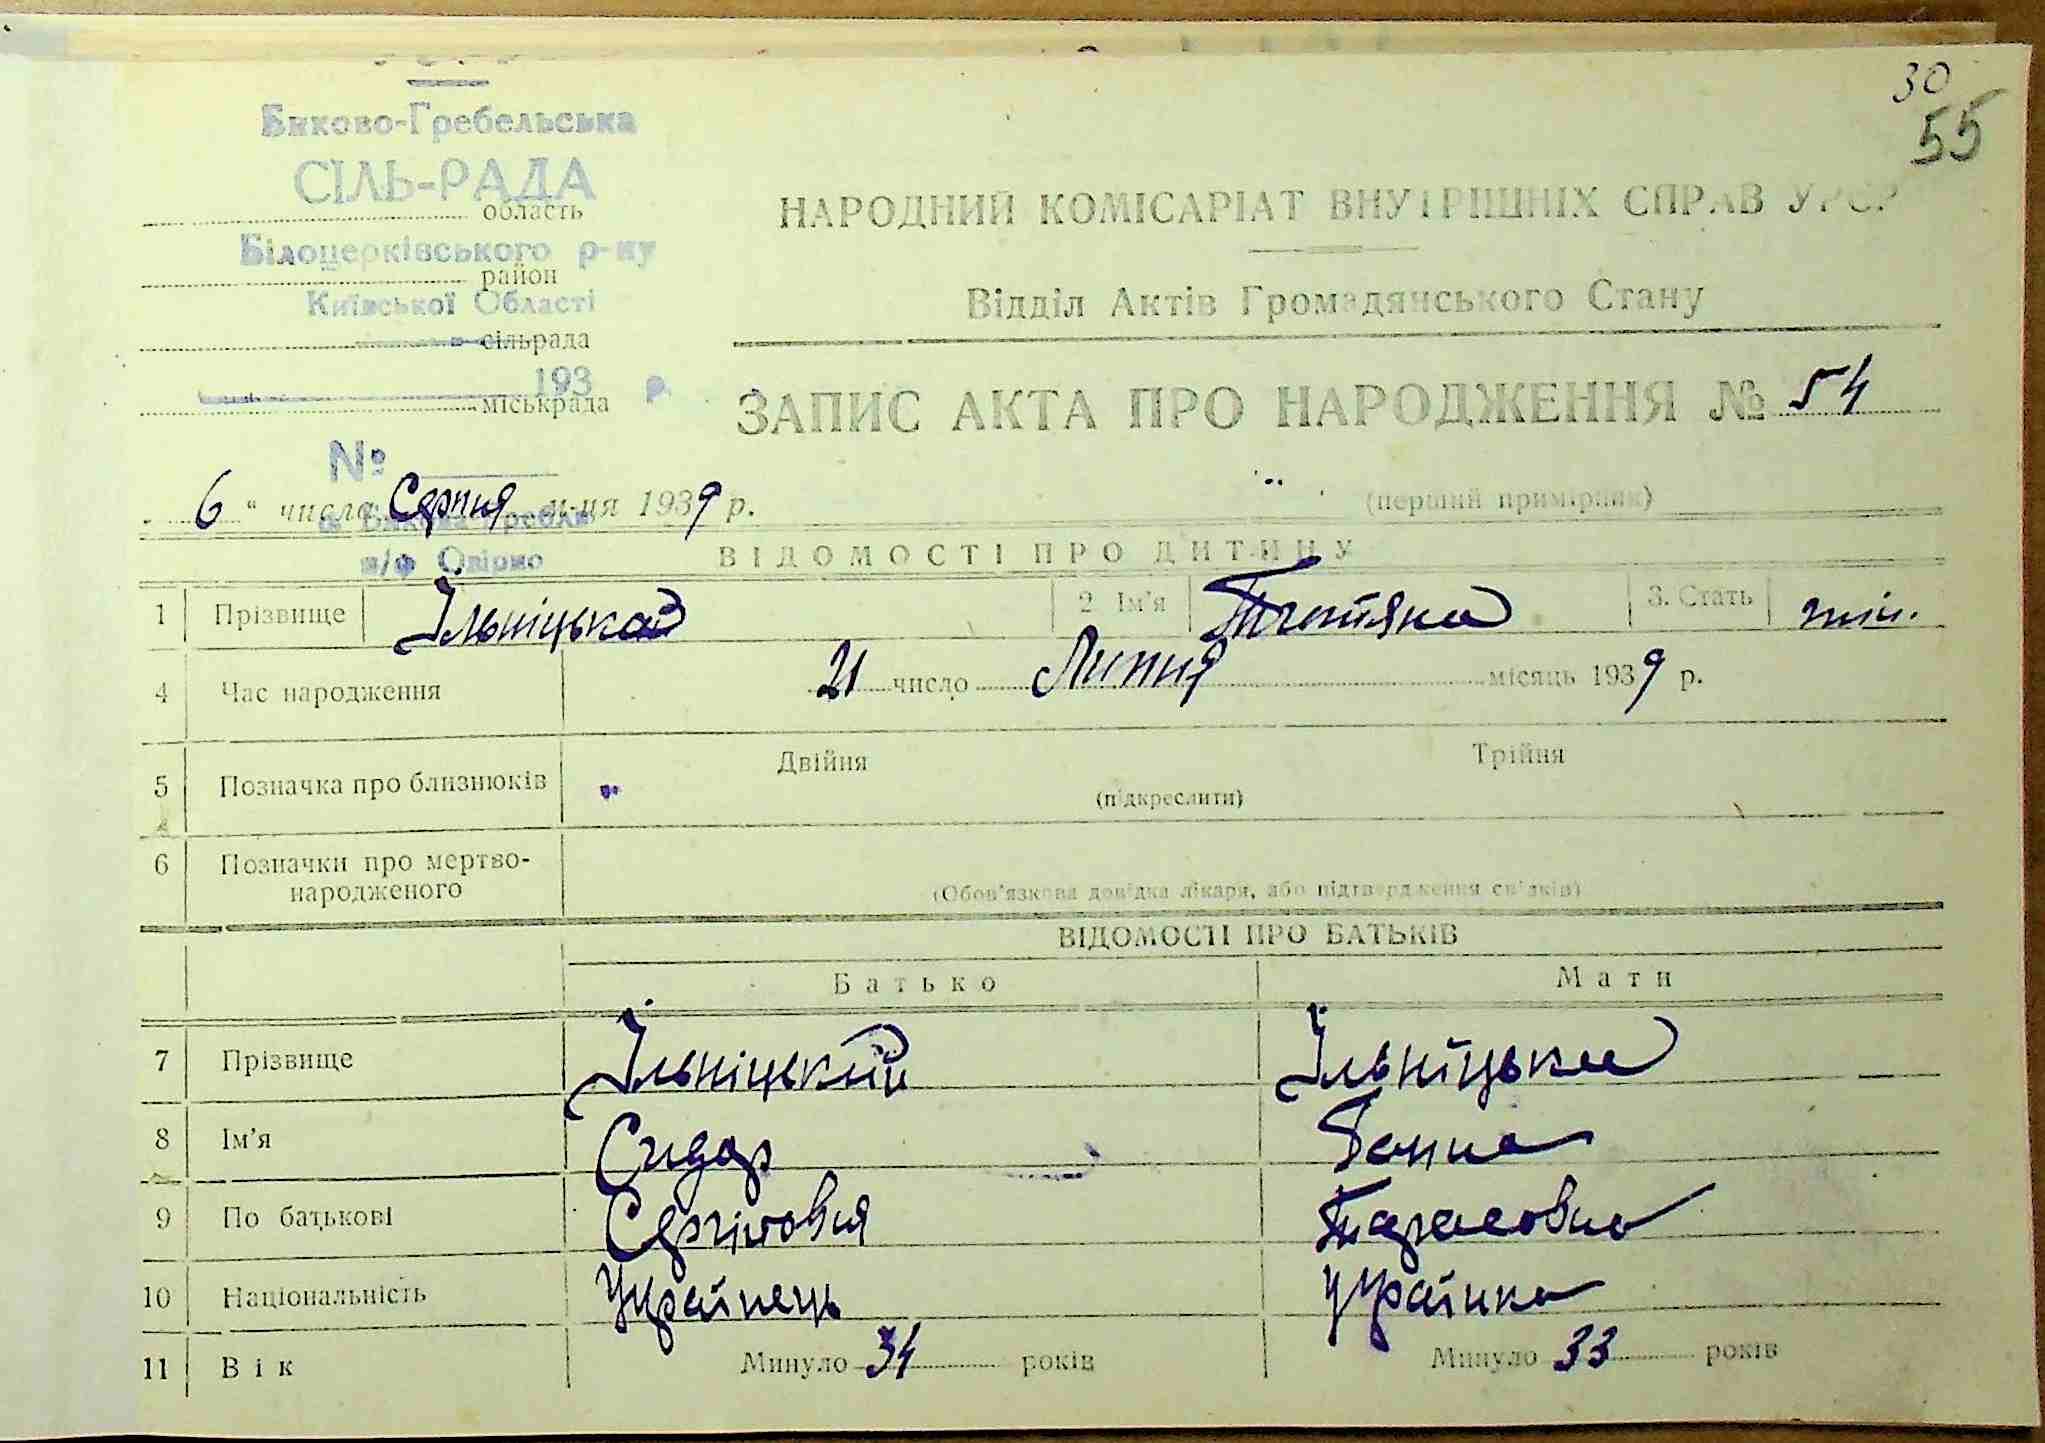 30
55
Биково-Гребельська
СІЛЬ-РАДА
область
Білоцерківського р-ну
район
Київської Області
сільрада
193 р.
міськрада
№
НАРОДНИЙ КОМІСАРІАТ ВНУТРІШНІХ СПРАВ УРСР
Відділ Актів Громадянського Стану
ЗАПИС АКТА ПРО НАРОДЖЕННЯ № 54
6 " числа Серпня м-ця 1939 р.
(перший примірник)
с. Бикова Гребля
п/ф Озірно
ВІДОМОСТІ ПРО ДИТИНУ
1 Прізвище Ільніцька 2 Ім'я Тетяна 3. Стать жін.
4 Час народження 21 число Липня місяць 1939 р.
5 Позначка про близнюків Двійня Трійня
(підкреслити)
6 Позначки про мертво-
народженого
(Обов'язкова довідка лікаря, або підтвердження свідків)
ВІДОМОСТІ ПРО БАТЬКІВ
Батько Мати
7 Прізвище Ільніцький Ільніцька
8 Ім'я Сидор Ганна
9 По батькові Сергійовия Тарасовна
10 Національність Українець Українка
11 Вік Минуло 34 років Минуло 33 років